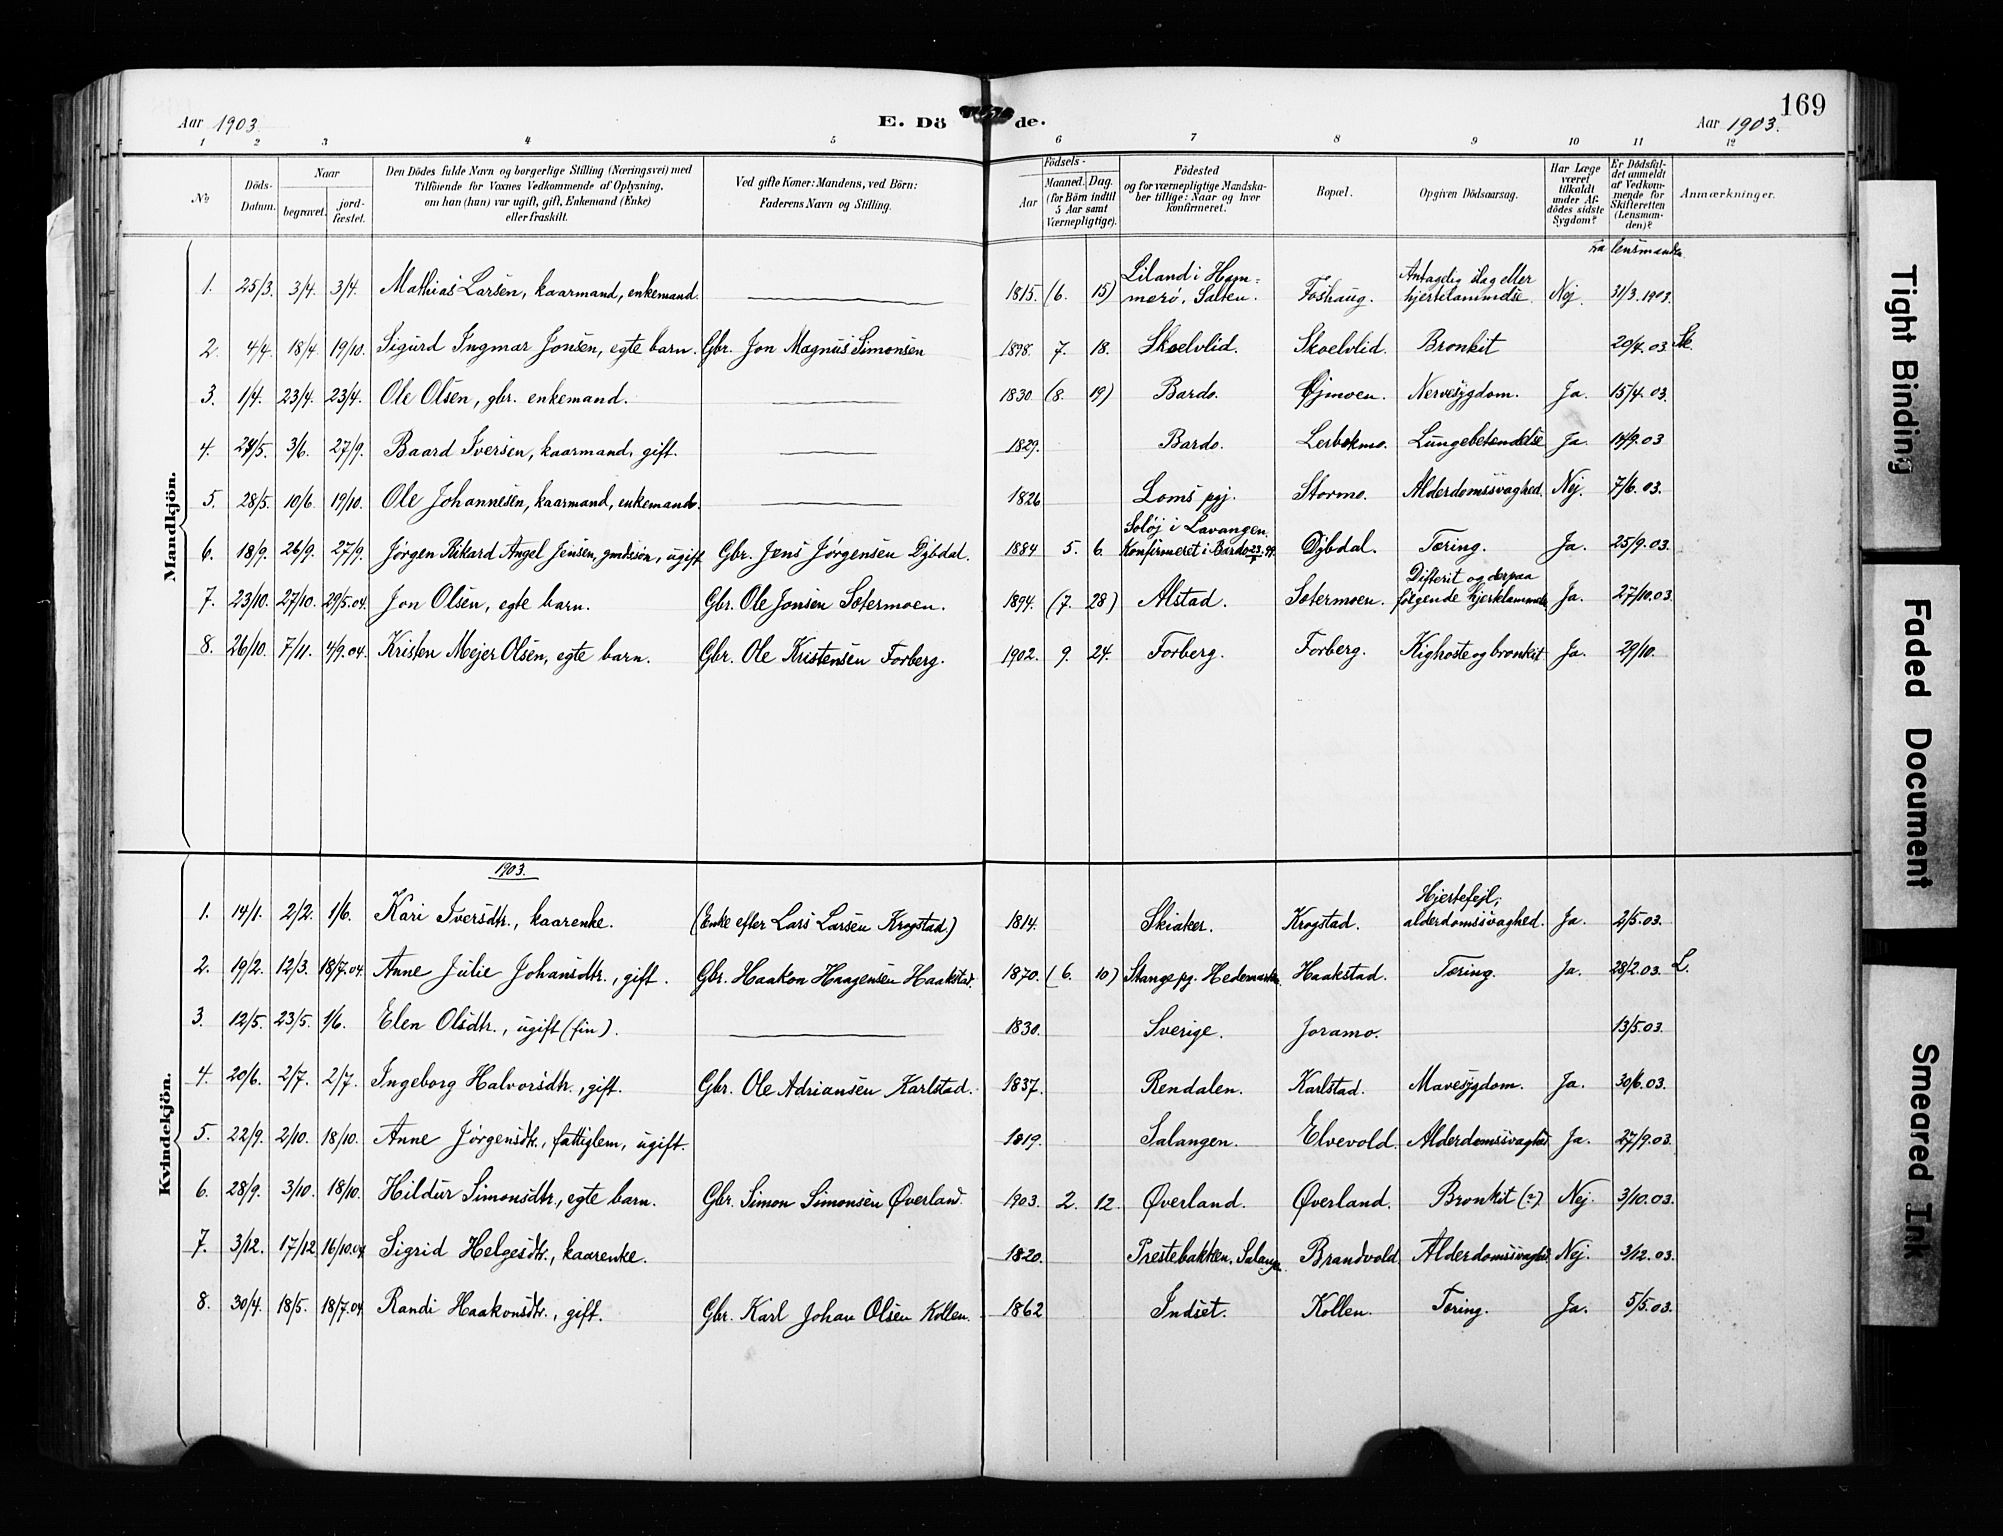 169
Aar 1903. E. Döde. Aar 1903.
1 2 3 4 5 6 7 8 9 10 11 12
No Döds-Datum. Naar begravet. jord-fæstet. Den Dödes fulde Navn og borgerlige Stilling (Næringsvei) med Tilföiende for Voxnes Vedkommende af Oplysning, om han (hun) var ugift, gift, Enkemand (Enke) eller fraskilt. Ved gifte Koner: Mandens, ved Börn: Faderens Navn og Stilling. Födsels- Aar Maaned. Dag. (for Börn indtil 5 Aar samt Værnepligtige). Födested og for værnepligtige Mandskaber tillige: Naar og hvor konfirmeret. Bopæl. Opgiven Dödsaarsag. Har Læge været tilkaldt under Afdödes sidste Sygdom? Er Dödsfaldet anmeldt af Vedkommende for Skifteretten (Lensmanden)? Anmærkninger.
Mandkjön.
Fra lensmanden
1. 25/3. 3/4. 3/4. Mathias Larsen, kaarmand, enkemand. 1815. (6. 15) Liland i Hammerø, Salten. Foshaug. Antagelig slag eller hjertelammelse. Nej. 31/3.1903.
2. 4/4. 18/4. 19/10. Sigurd Ingmar Jonsen, egte barn. Gbr. Jon Magnus Simonsen 1898. 7. 18. Skoelvlid. Skoelvlid. Bronkit 20/4.03. Sk.
3. 1/4. 23/4. 23/4. Ole Olsen, gbr. enkemand. 1830. (8. 19) Bardo. Øjmoen. Nervesygdom. Ja. 15/4.03.
4. 24/5. 3/6. 27/9. Baard Iversen, kaarmand, gift. 1829. Bardo. Lerbekmo. Lungebetendelse Ja. 14/9.03
5. 28/5. 10/6. 19/10. Ole Johannesen, kaarmand, enkemand. 1826 Loms pgj. Stormo. Alderdomssvaghed. Nej. 7/6.03.
6. 18/9. 26/9. 27/9. Jørgen Rikard Angel Jensen, gmdssøn, ugift Gbr. Jens Jørgensen Dybdal. 1884 5. 6. Soløj i Lavangen. Konfirmeret i Bardo Dybdal. Tæring. Ja. 25/9.03.
7. 23/10. 27/10. 29/5.04. Jon Olsen, egte barn. Gbr. Ole Jonsen Sætermoen. 1894. (7. 28) Alstad. Sætermoen. Difterit og derpaa følgende hjertelammelse Ja. 27/10.03.
8. 26/10. 7/11. 4/9.04. Kristen Mejer Olsen, egte barn. Gbr. Ole Kristensen Forberg. 1902. 9. 24. Forberg. Forberg. Kighoste og bronkit Ja. 29/10.
Kvindekjön.
1903.
1. 14/1. 2/2. 1/6. Kari Iversdtr., kaarenke. (Enke efter Lars Larsen Krogstad.) 1814. Skiaker. Krogstad. Hjertefejl, alderdomssvaghed. Ja. 2/5.03.
2. 19/2. 12/3. 18/7.04. Anne Julie Johansdtr., gift. Gbr. Haakon Haagensen Haakstad. 1870. (6. 10) Stange pg. Hedemarken Haakstad. Tæring. Ja. 28/2.03. L.
3. 12/5. 23/5. 1/6. Elen Olsdtr., ugift (fin). 1830. Sverige. Joramo. 13/5.03.
4. 20/6. 2/7. 2/7. Ingeborg Halvorsdtr., gift. Gbr. Ole Adriansen Karlstad. 1837. Rendalen. Karlstad. Mavesygdom. Ja. 30/6.03.
5. 22/9. 2/10. 18/10. Anne Jørgensdtr., fattiglem, ugift. 1819. Salangen. Elvevold. Alderdomssvaghed Ja. 27/9.03.
6. 28/9. 3/10. 18/10. Hildur Simonsdtr., egte barn. Gbr. Simon Simonsen Øverland. 1903. 2. 12. Øverland. Øverland. Bronkit (?) Nej. 3/10.03.
7. 3/12. 17/12 16/10.04 Sigrid Helgesdtr., kaarenke. 1820. Prestebakken, Salangen. Brandvold. Alderdomssvaghed. Nej. 3/12.03.
8. 30/4. 18/5. 18/7.04 Randi Haakonsdtr., gift. Gbr. Karl Johan Olsen Kollen. 1862 Indset. Kollen. Tæring. Ja. 5/5.03.
Tight Binding
Faded Document
Smeared Ink